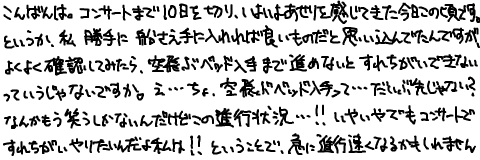 こんばんは。コンサートまで10日を切り、いよいよあせりを感じてきた今日この頃です。
というか、私 勝手に 船さえ手に入れれば良いものだと思い込んでたんですが
よくよく確認してみたら、空飛ぶベッド入手まで進めないとすれちがいできない
っていうじゃないですか。え…ちょ、空飛ぶベッド入手って…だいぶ先じゃない?
なんかもう笑うしかないんだけどこの進行状況…!! いやいやでもコンサートで
すれちがいやりたいんだよ私は!! ということで、急に進行速くなるかもしれません